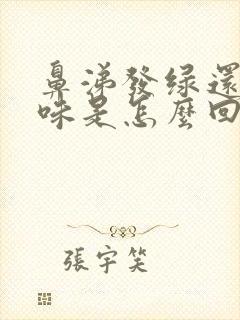 鼻涕發綠還
味是怎麼回
張宇笑